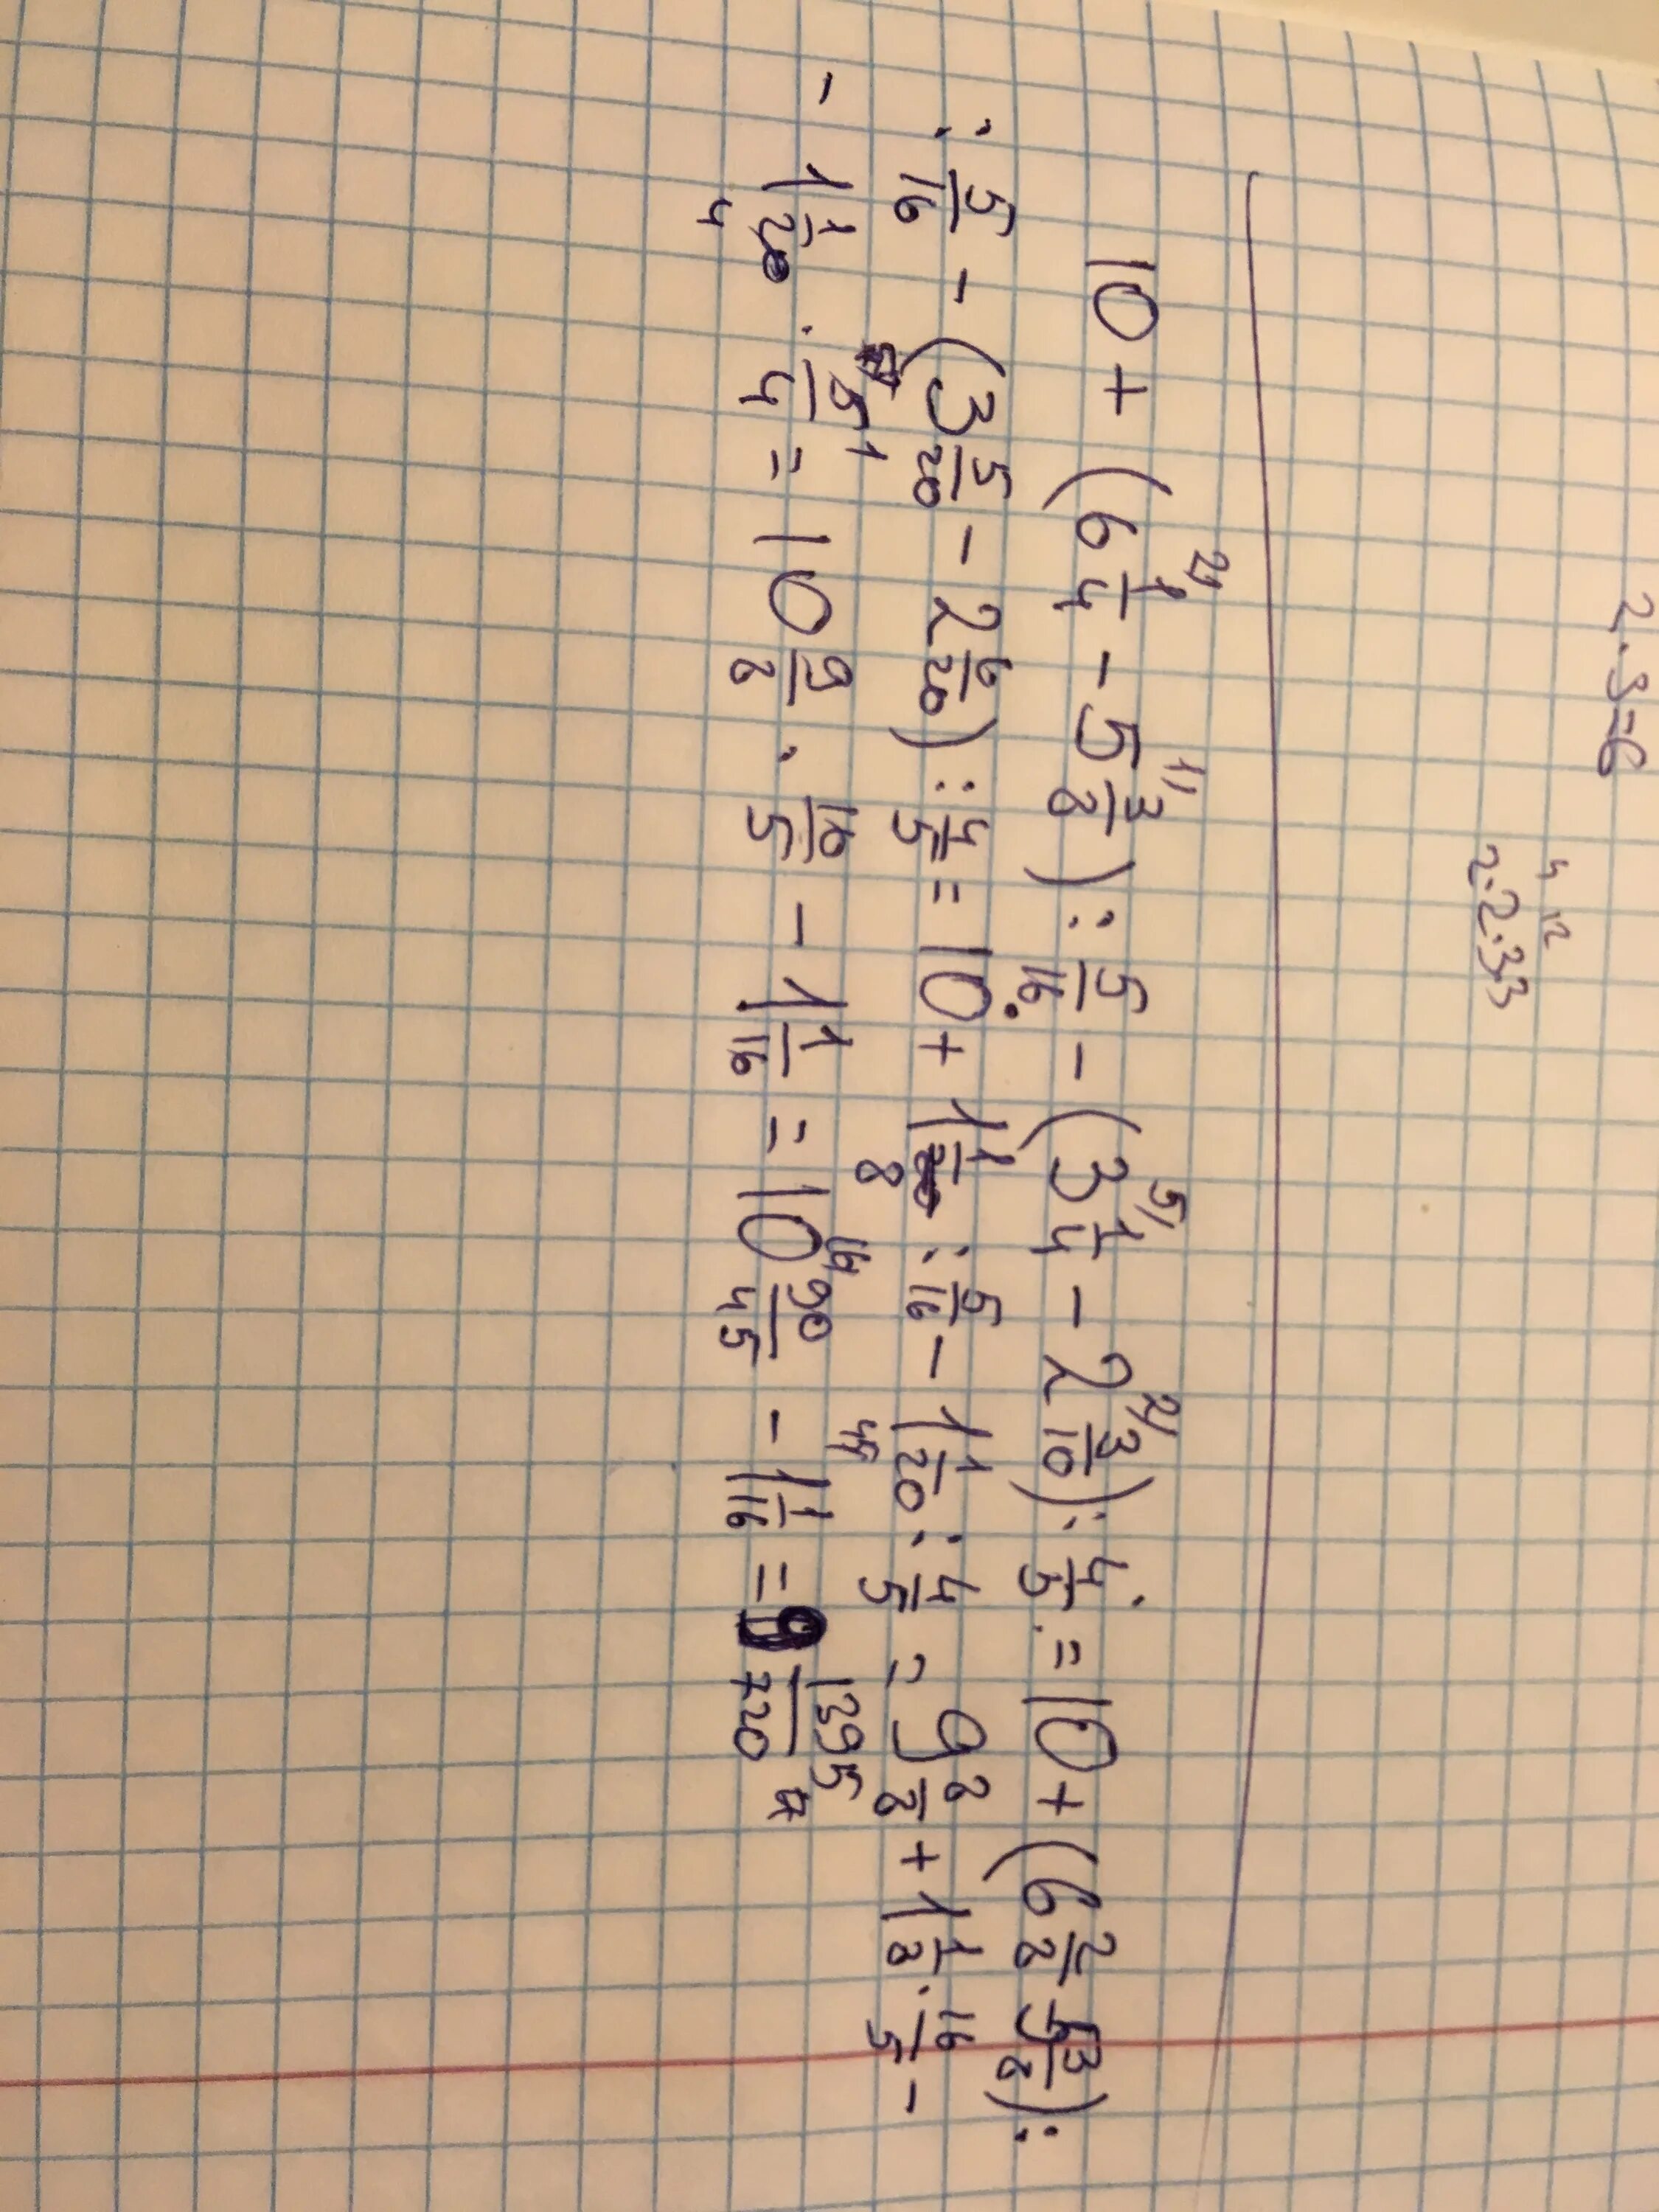 2·3=6
4 12
2·2·3·3
10 + (6 2/ 1/4 - 5 1/ 3/8) : 5/16 - (3 5/ 1/4 - 2 2/ 3/10) : 4/5 = 10 + (6 2/8 - 5 3/8) :
: 5/16 - (3 5/20 - 2 6/20) : 4/5 = 10 + 1 1/8 : 5/16 - 1 1/20 : 4/5 = 9 8/8 + 1 1/8 · 16/5 -
- 1 1/4 · 5 1/4 = 10 9/8 · 16/5 - 1 1/16 = 10 90/45 - 1 1/16 = 9 1395/720